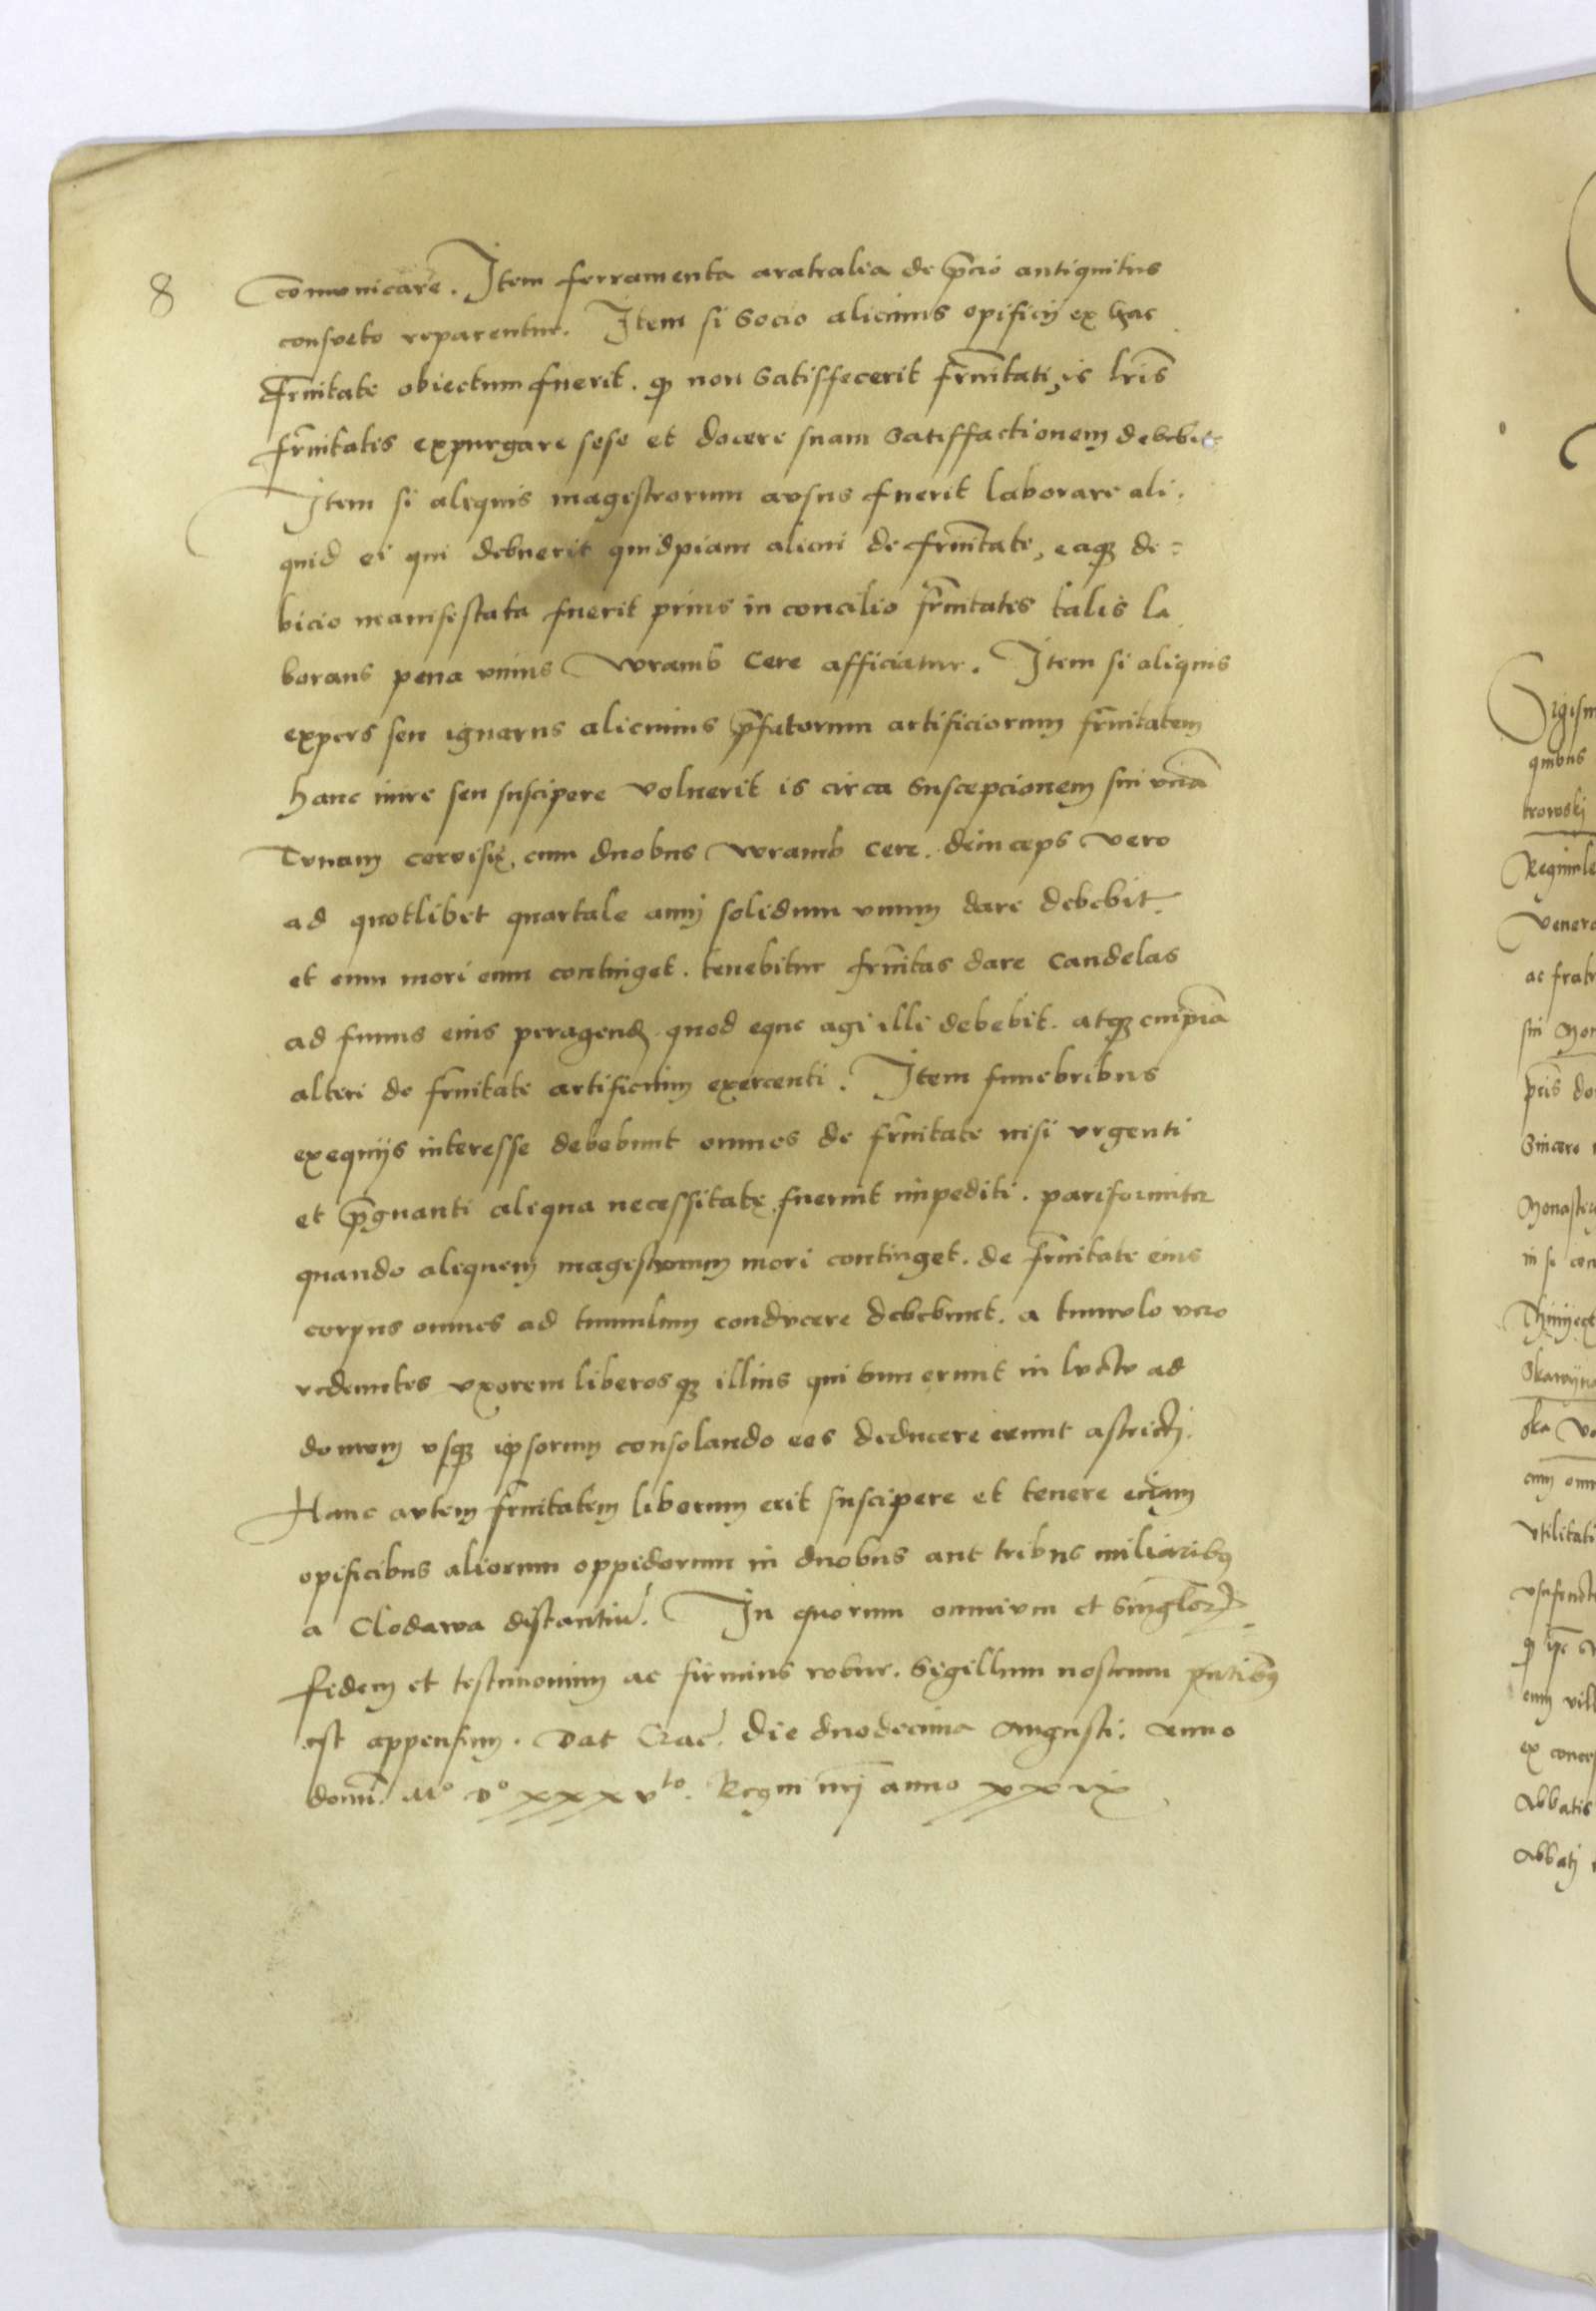 8
Com̄onicare. Item ferramenta aratralia de p̄cio antiquitus
consveto reparentur. Item si Socio alicuius opificij ex hac
fr̄nitate obiectum fuerit. ꝙ non Satisfecerit fr̄nitati, is lr̄is
fr̄nitatis expurgare sese et docere suam Satisffactionem debebit
Item si aliquis magistrorum avsus fuerit laborare ali-
quid ei qui debuerit quidpiam alicui de fr̄nitate, eaqꝫ de=
bicio manifestata fuerit prius in concilio fr̄nitatis talis la
borans pena vnius Wramb Cere afficiatur. Item si aliquis
expers seu ignarus alicuius p̄fatorum artificiorum fr̄nitatem
hanc inire seu suscipere Voluerit is circa Suscepcionem sui vnā
Tvnam cervisię, cum duobus Wramb Cere. deinceps Vero
ad quotlibet quartale anni solidum vnum dare debebit.
et cum mori eum continget. tenebitur fr̄nitas dare Candelas
ad funus eius peragendꝫ quod eque agi illi debebit. atqꝫ cuipiā
alteri de fr̄nitate artificium exercenti. Item funebribus
exequijs interesse debebunt omnes de fr̄nitate nisi vrgenti
et p̄gnanti aliqua necessitate fuerint impediti. pariformiter
quando aliquem magistrorum mori continget. de fr̄nitate eius
corpus omnes ad tumulum condvcere debebunt. a tumvlo vero
redeuntes vxorem liberosqꝫ illius qui tum erunt in lvctv ad
domvm vsqꝫ ipsorum consolando eos deducere erunt astricti.
Hanc avtem fr̄nitatem liberum erit suscipere et tenere eciam
opificibus aliorum oppidorum in duobus aut tribus miliaribꝫ
a Clodawa distantiū. In quorum omnivm et Singlorꝝ
fidem et testimonium ac firmius robur. Sigillum nostrum pn̄tibꝫ
est appensum. Dat Crac̄. die duodecima Augusti. Anno
domī. Mo Do xxxvto. Regni nr̄i anno xxix
Sigism
quibus
trowski
Regimle
Venera
ac fratr
sui Mon
p̄cis do
Sincere
Monaster
in se con
Thinyec
Skawyna
ska Vo
cum omn
Vtilitati
vsufruct
eum vill
ex conces
Abbatis
Abbatj